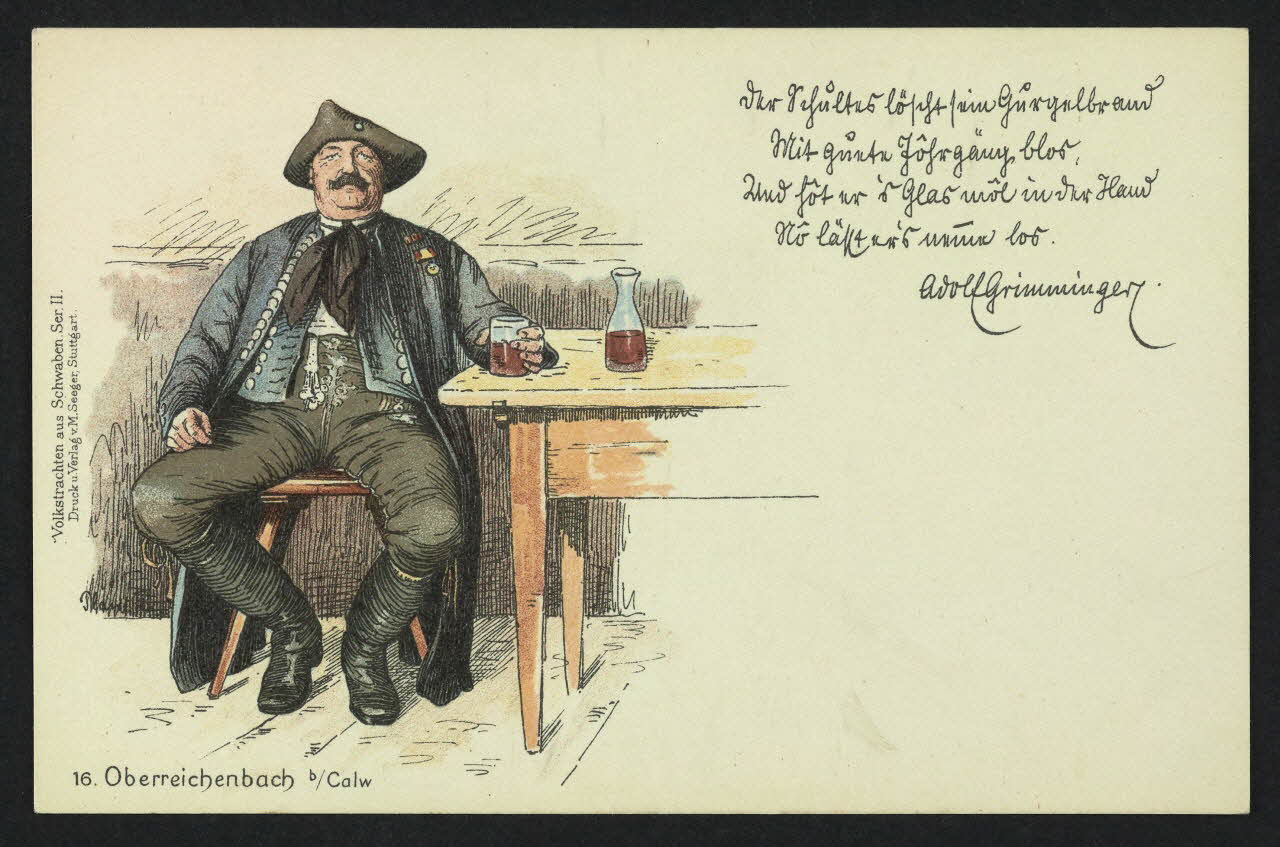 Der Schultes löscht sein Gurgelbrand
Mit guete Jôhrgäng blos,
Und hôt er 's Glas môl in der Hand
Nô lässt er's neme los.
Adolf Grimminger.
"Volkstrachten aus Schwaben. Ser. II.
Druck u. Verlag v. M. Seeger, Stuttgart.
16. Oberreichenbach b/Calw